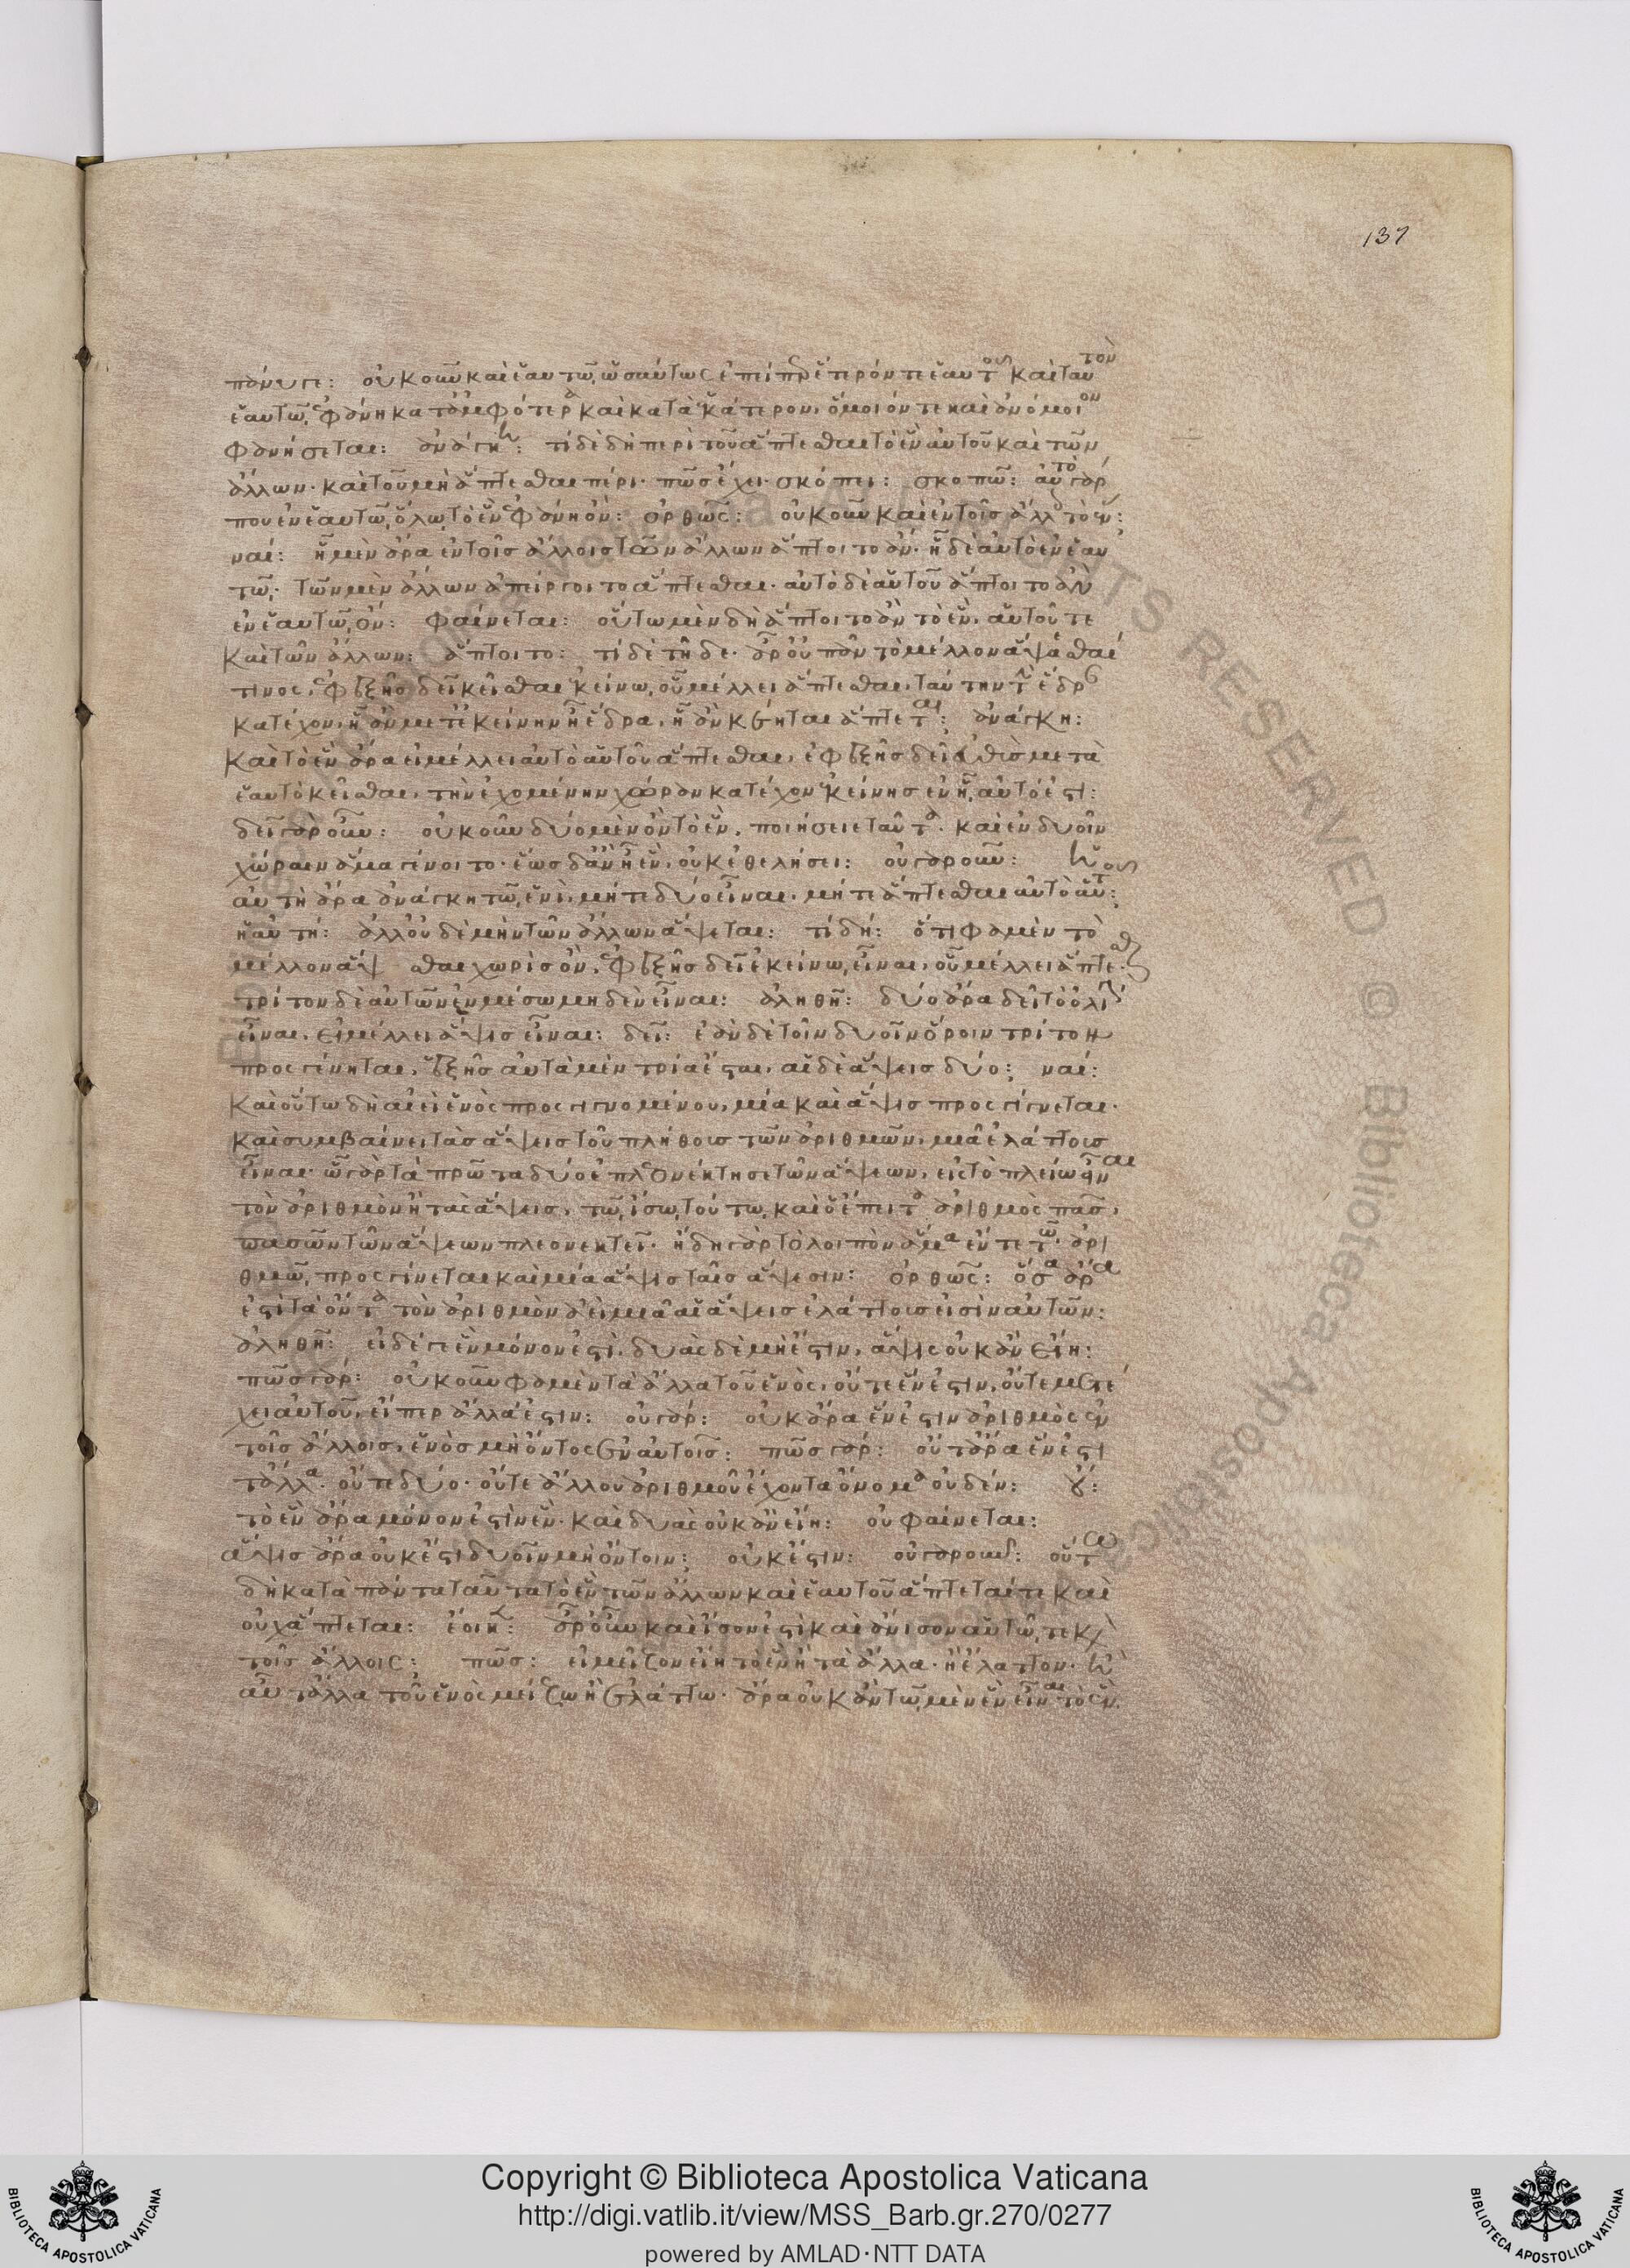 137
πάνυ γε: οὐκοῦν καὶ ἑαυτῶ ὡσαύτως ἐπείπερ ἕτερόν τε ἑαυτοῦ καὶ ταυτὸν
ἑαυτῶ ἐφάνη κατ' ἀμφότερα καὶ κατὰ ἑκάτερον, ὅμοιόν τε καὶ ἀνόμοιον
φανήσεται: ἀνάγκη: τί δὲ δὴ περὶ τοῦ ἅπτεσθαι τὸ ἓν αὑτοῦ καὶ τῶν
ἄλλων· καὶ τοῦ μὴ ἅπτεσθαι πέρι· πῶς ἔχει· σκόπει: σκοπῶ: αὐτὸ γάρ
που ἐν ἑαυτῶ ὅλω τὸ ἓν ἐφάνη ὄν: ὀρθῶς: οὐκοῦν καὶ ἐν τοῖς ἄλλοις τὸ ἕν:
ναί: ἧ μὲν ἄρα ἐν τοῖς ἄλλοις τῶν ἄλλων ἅπτοιτο ἄν· ἧ δὲ αὐτὸ ἐν ἑαυ
τῶ· τῶν μὲν ἄλλων ἀπείργοιτο ἅπτεσθαι· αὐτὸ δὲ αὑτοῦ ἅπτοιτο ἂν
ἐν ἑαυτῶ ὄν: φαίνεται: οὕτω μὲν δὴ ἅπτοιτο ἂν τὸ ἓν, αὑτοῦ τε
καὶ τῶν ἄλλων: ἅπτοιτο: τί δὲ τῆδε· ἆρ' οὐ πᾶν τὸ μέλλον ἅψεσθαί
τινος, ἐφεξῆς δεῖ κεῖσθαι ἐκείνω οὗ μέλλει ἅπτεσθαι, ταύτην τὴν ἕδραν
κατέχον, ἣ ἂν μετ' ἐκείνην ἦ ἕδρα, ἧ ἂν κέηται ἅπτεται: ἀνάγκη:
καὶ τὸ ἓν ἄρα εἰ μέλλει αὐτὸ αὑτοῦ ἅπτεσθαι, ἐφεξῆς δεῖ εὐθὺς μετὰ
ἑαυτὸ κεῖσθαι, τὴν ἐχομένην χώραν κατέχον ἐκείνης ἐν ἧ αὐτό ἐστι:
δεῖ γὰρ οὖν: οὐκοῦν δύο μὲν ὂν τὸ ἓν, ποιήσειε ταῦτα· καὶ ἐν δυοῖν
χώραιν ἅμα γένοιτο· ἕως δ' ἂν ἦ ἓν, οὐκ ἐθελήσει: οὐ γὰρ οὖν: ἡ
αὐτὴ ἄρα ἀνάγκη τῶ ἑνὶ, μήτε δύο εἶναι, μήτε ἅπτεσθαι αὐτὸ αὑτοῦ:
ἡ αὐτή: ἀλλ' οὐδὲ μὴν τῶν ἄλλων ἅψεται: τί δή: ὅτι φαμὲν τὸ
μέλλον ἅψεσθαι χωρὶς ὂν, ἐφεξῆς δεῖ ἐκείνω εἶναι, οὗ μέλλει ἅπτεσθαι·
τρίτον δὲ αὐτῶν ἐν μέσω μηδὲν εἶναι: ἀληθῆ: δύο ἄρα δεῖ τὸ ὀλίγιστον
εἶναι, εἰ μέλλει ἅψις εἶναι: δεῖ: ἐὰν δὲ τοῖν δυοῖν ὅροιν τρίτον
προσγένηται, ἑξῆς αὐτὰ μὲν τρία ἔσται, αἱ δὲ ἅψεις δύο: ναί:
καὶ οὕτω δὴ ἀεὶ ἑνὸς προσγιγνομένου, μία καὶ ἅψις προσγίγνεται·
καὶ συμβαίνει τὰς ἅψεις τοῦ πλήθους τῶν ἀριθμῶν, μιᾶ ἐλάττους
εἶναι· ὧ γὰρ τὰ πρῶτα δύο ἐπλεονέκτησε τῶν ἅψεων, εἰς τὸ πλείω εἶναι
τὸν ἀριθμὸν ἢ τὰς ἅψεις, τῶ ἴσω τούτω καὶ ὁ ἔπειτα ἀριθμὸς πᾶς,
πασῶν τῶν ἅψεων πλεονεκτεῖ· ἤδη γὰρ τὸ λοιπὸν ἅμα ἕν τε τῶ ἀρι
θμῶ προσγίνεται καὶ μία ἅψις ταῖς ἅψεσιν: ὀρθῶς: ὅσα ἄρα
ἐστὶ τὰ ὄντα τὸν ἀριθμὸν ἀεὶ μιᾶ αἱ ἅψεις ἐλάττους εἰσὶν αὐτῶν:
ἀληθῆ: εἰ δέ γε ἓν μόνον ἐστὶ, δυὰς δὲ μὴ ἔστιν, ἅψις οὐκ ἂν εἴη:
πῶς γάρ: οὐκοῦν φαμὲν τὰ ἄλλα τοῦ ἑνὸς, οὔτε ἕν ἐστιν, οὔτε μετέ
χει αὐτοῦ, εἴπερ ἄλλα ἐστίν: οὐ γάρ: οὐκ ἄρα ἔνεστιν ἀριθμὸς ἐν
τοῖς ἄλλοις, ἑνὸς μὴ ὄντος ἐν αὐτοῖς: πῶς γάρ: οὔτ' ἄρα ἕν ἐστι
τἄλλα· οὔτε δύο· οὔτε ἄλλου ἀριθμοῦ ἔχοντα ὄνομα οὐδέν: οὔ:
τὸ ἓν ἄρα μόνον ἐστὶν ἕν· καὶ δυὰς οὐκ ἂν εἴη: οὐ φαίνεται:
ἅψις ἄρα οὐκ ἔστι δυοῖν μὴ ὄντοιν: οὐκ ἔστιν: οὐ γὰρ οὖν: οὕτω
δὴ κατὰ πάντα ταῦτα τὸ ἓν τῶν ἄλλων καὶ ἑαυτοῦ ἅπτεταί τε καὶ
οὐχ ἅπτεται: ἔοικεν: ἆρ' οὖν καὶ ἴσον ἐστὶ καὶ ἄνισον αὑτῶ τε καὶ
τοῖς ἄλλοις: πῶς: εἰ μεῖζον εἴη τὸ ἓν ἢ τὰ ἄλλα· ἢ ἔλαττον· ἢ
αὖ τἄλλα τοῦ ἑνὸς μείζω ἢ ἐλάττω· ἄρα οὐκ ἂν τῶ μὲν ἓν εἶναι τὸ ἓν
Copyright © Biblioteca Apostolica Vaticana
http://digi.vatlib.it/view/MSS_Barb.gr.270/0277
powered by AMLAD·NTT DATA